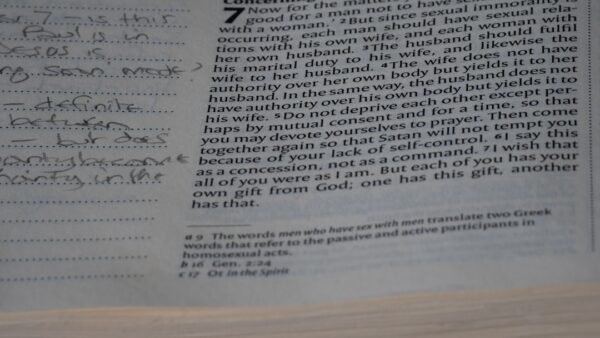 r 7 – is this
Paul is in
Jesus is
mark?
– definite
between
– but does
become
in the
Concerning
7 Now for the matters
good for a man not to have sexual
with a woman.” ²But since sexual immorality is
occurring, each man should have sexual rela-
tions with his own wife, and each woman with
her own husband. ³The husband should fulfil
his marital duty to his wife, and likewise the
wife to her husband. ⁴The wife does not have
authority over her own body but yields it to her
husband. In the same way, the husband does not
have authority over his own body but yields it to
his wife. ⁵Do not deprive each other except per-
haps by mutual consent and for a time, so that
you may devote yourselves to prayer. Then come
together again so that Satan will not tempt you
because of your lack of self-control. ⁶I say this
as a concession, not as a command. ⁷I wish that
all of you were as I am. But each of you has your
own gift from God; one has this gift, another
has that.
a 9 The words men who have sex with men translate two Greek
words that refer to the passive and active participants in
homosexual acts.
b 16 Gen. 2:24
c 17 Or in the Spirit